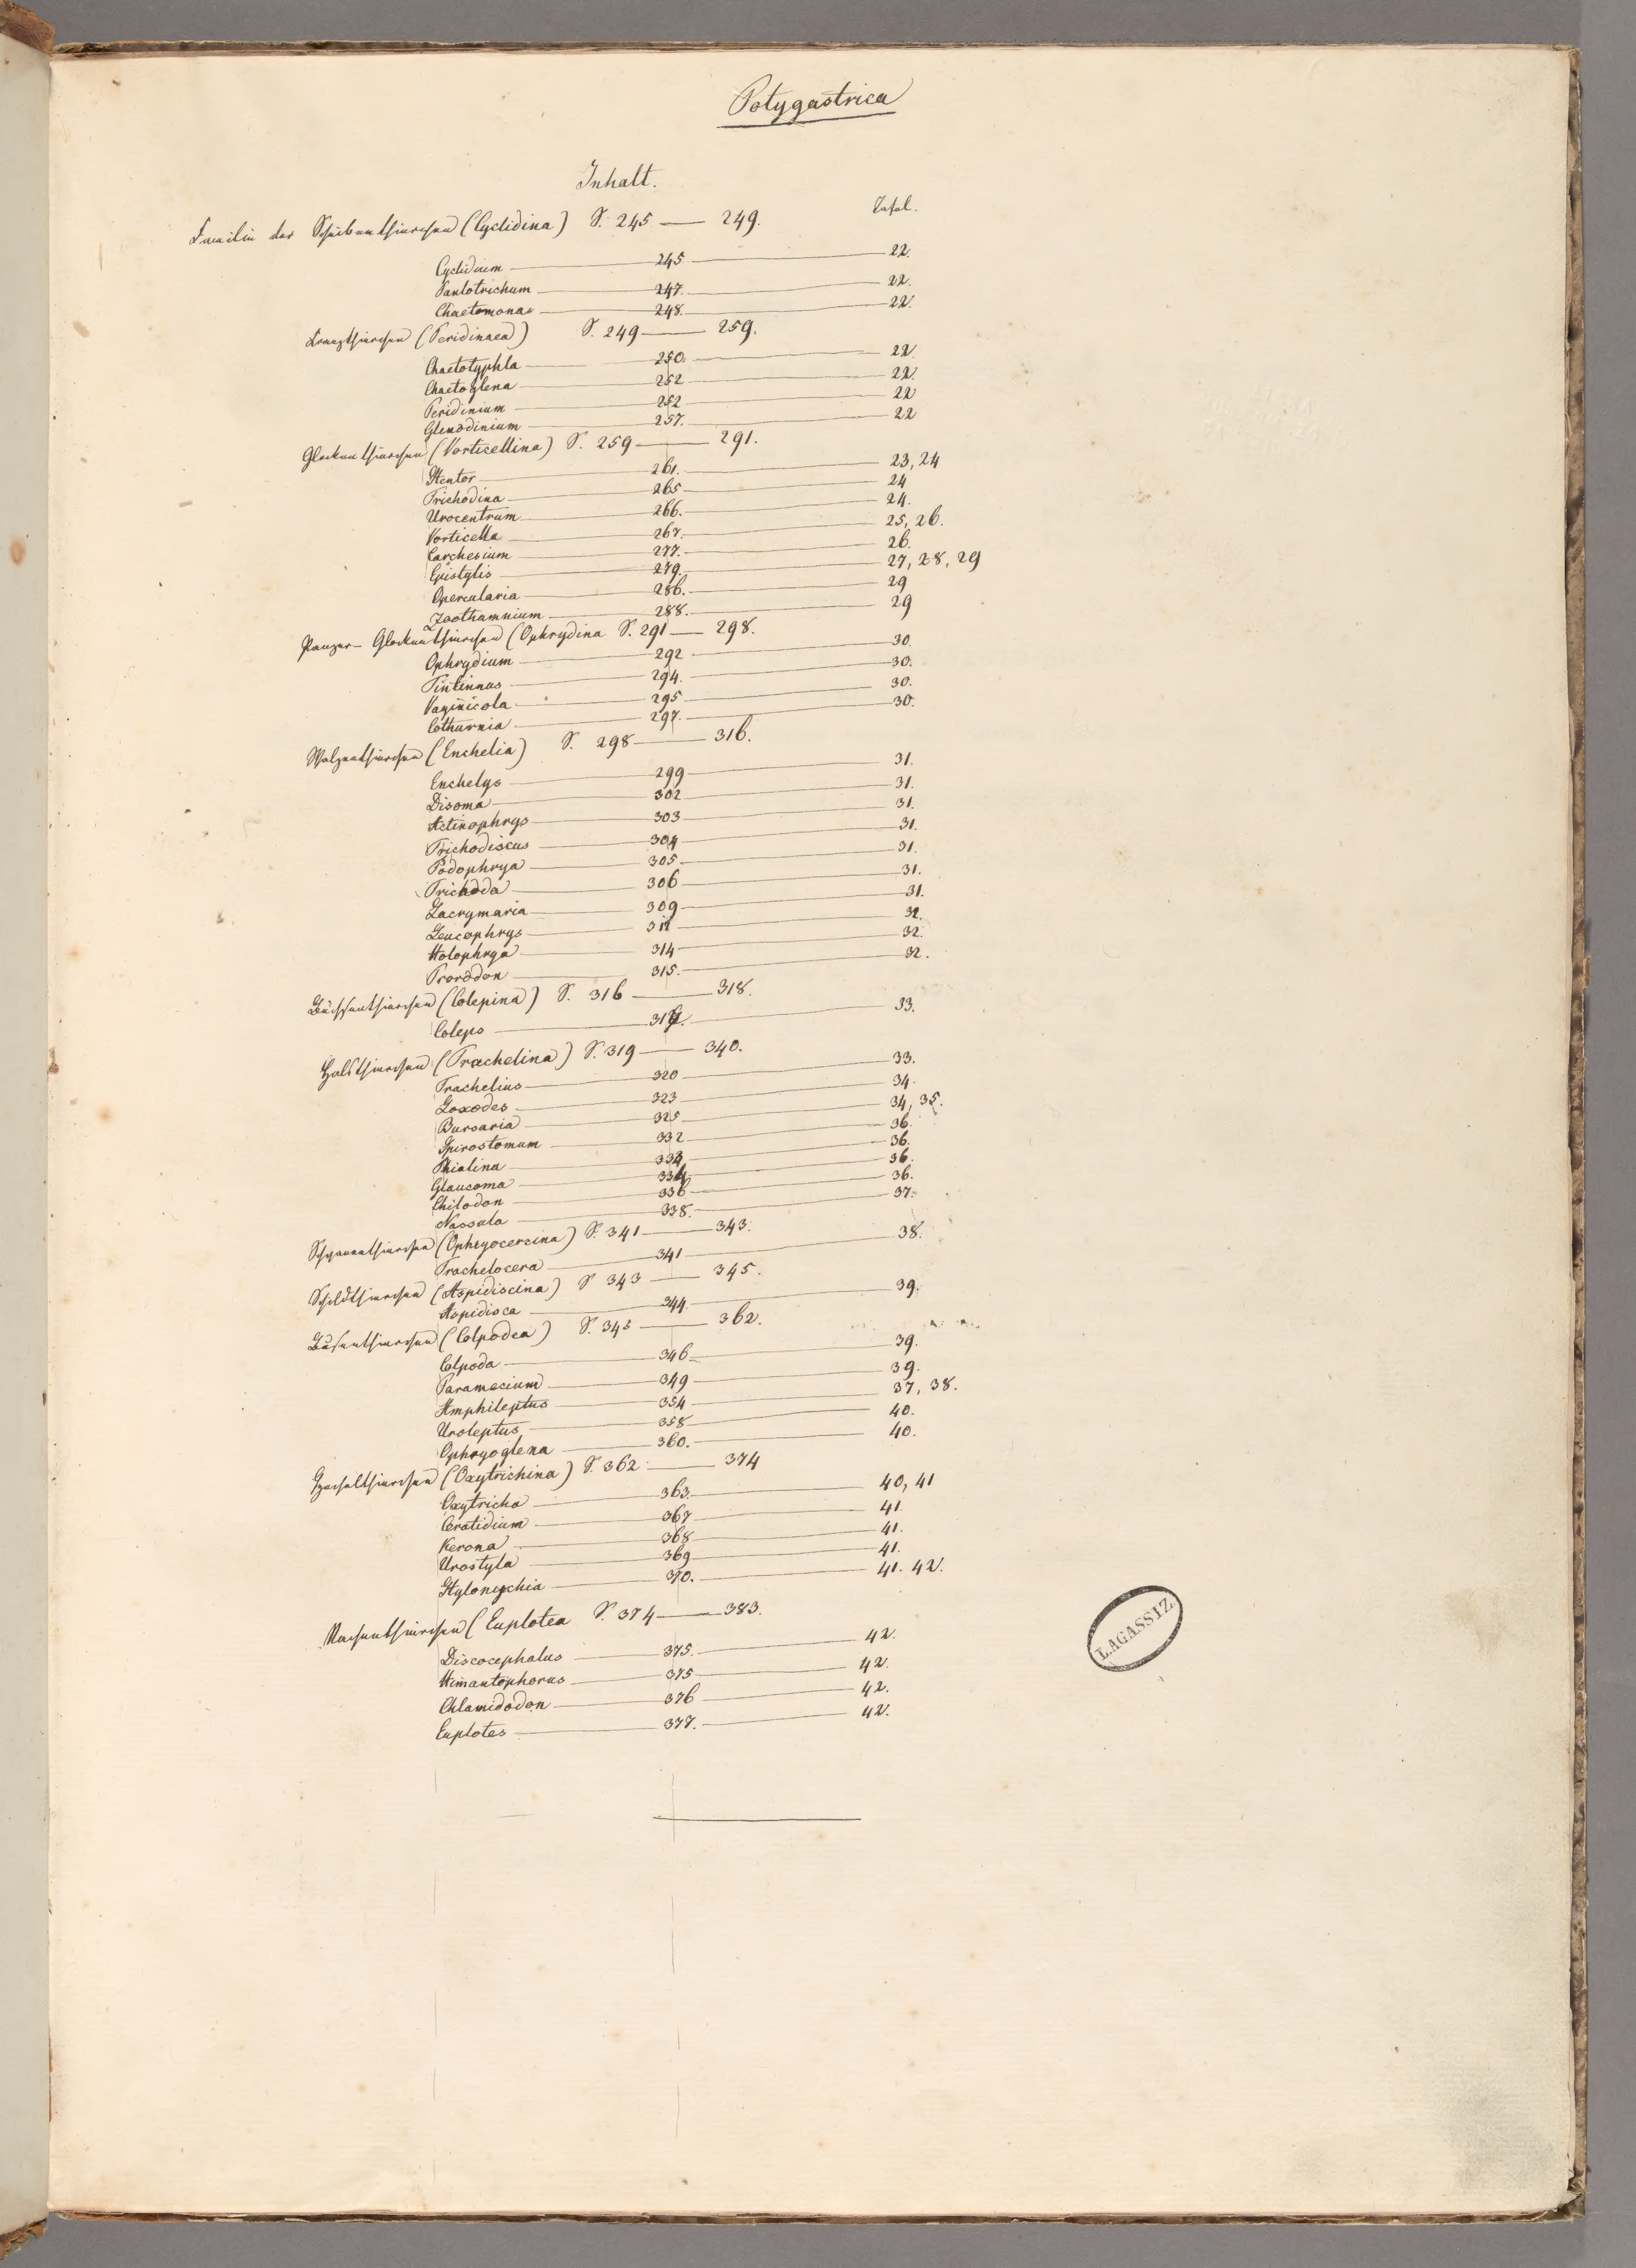 Polygastrica
Inhalt.
Tafel.
Familie der Scheibenthierchen (Cyclidina) S. 245 — 249.
Cyclidium — 245 — 22.
Pantotrichum — 247. — 22.
Chaetomonas — 248. — 22.
Kranzthierchen (Peridinaea) S. 249 — 259.
Chaetotyphla — 250. — 22.
Chaetoglena — 252 — 22.
Peridinium — 252 — 22
Glenodinium — 257. — 22
Glockenthierchen (Vorticellina) S. 259 — 291.
Stentor — 261. — 23, 24
Trichodina — 265 — 24
Urocentrum — 266. — 24.
Vorticella — 267. — 25, 26.
Carchesium — 277. — 26.
Epistylis — 279. — 27, 28, 29
Opercularia — 286. — 29
Zoothamnium — 288. — 29
Panzer-Glockenthierchen (Ophrydina S. 291 — 298.
Ophrydium — 292 — 30.
Tintinnus — 294. — 30.
Vaginicola — 295 — 30.
Cothurnia — 297. — 30.
Walzenthierchen (Enchelia) S. 298 — 316.
Enchelys — 299 — 31.
Disoma — 302 — 31.
Actinophrys — 303 — 31.
Trichodiscus — 304 — 31.
Podophrya — 305 — 31.
Trichoda — 306 — 31.
Lacrymaria — 309 — 31.
Leucophrys — 311 — 32.
Holophrya — 314 — 32.
Prorodon — 315. — 32.
Büchsenthierchen (Colepina) S. 316 — 318.
Coleps — 33.
Halsthierchen (Trachelina) S. 319 — 340.
Trachelius — 320 — 33.
Loxodes — 323 — 34.
Bursaria — 325 — 34, 35.
Spirostomum — 332 — 36.
Phialina — 333 — 36.
Glaucoma — 334 — 36.
Chilodon — 336 — 36.
Nassula — 338. — 37.
Schwanenthierchen (Ophryocercina) S. 341 — 343.
Trachelocerca — 341 — 38.
Schildthierchen (Aspidiscina) S 343 — 345.
Aspidisca — 344. — 39.
(Colpodea) S. 345 — 362.
Colpoda — 346 — 39.
Paramecium — 349 — 39.
Amphileptus — 354 — 37, 38.
Uroleptus — 358 — 40.
Ophryoglena — 360. — 40.
Hechelthierchen (Oxytrichina) S. 362 — 374
Oxytricha — 363. — 40, 41
Ceratidium — 367 — 41.
Kerona — 368 — 41.
Urostyla — 369 — 41.
Stylonychia — 370. — 41. 42.
Nachenthierchen (Euplotea S. 374 — 383.
Discocephalus — 375. — 42.
Himantophorus — 375 — 42.
Chlamidodon — 376 — 42.
Euplotes — 377. — 42.
L.AGASSIZ.